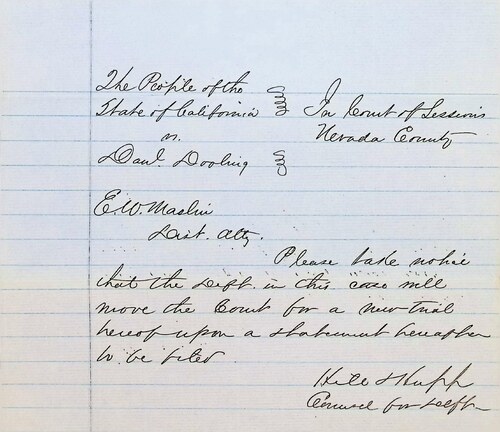 The People of the
State of California
vs.
Danl. Dooling
In Court of Sessions
Nevada County
E. W. Maslin
Dist. Atty.
Please take notice
that the Deft. in this case will
move the Court for a new trial
hereof upon a statement hereafter
to be filed
Counsel for Deft